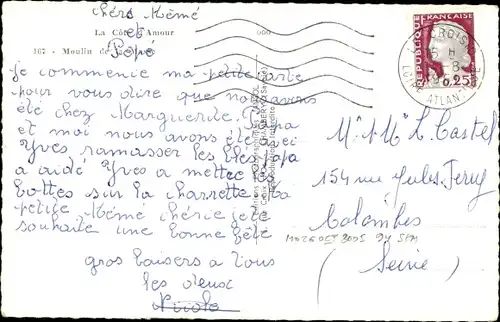 chérs Mémé
et
Pépé
La Côte d'Amour
167 - Moulin de
000
je commence ma petite carte
pour vous dire que nous avons
été chez Marguerite. Papa
et moi nous avons été avec
Yves ramasser les blés papa
a aidé Yves a mettre les
bottes sur la charrette. Ma
petite Mémé chérie je te
souhaite une bonne fête
gros baisers a tous
les deux
Nicole
RÉPUBLIQUE
FRANÇAISE
0,25
CROISIC
15 H
8
ATLANT
M. et Mme L. Castel
154 rue Jules Ferry
Colombes
(Seine)